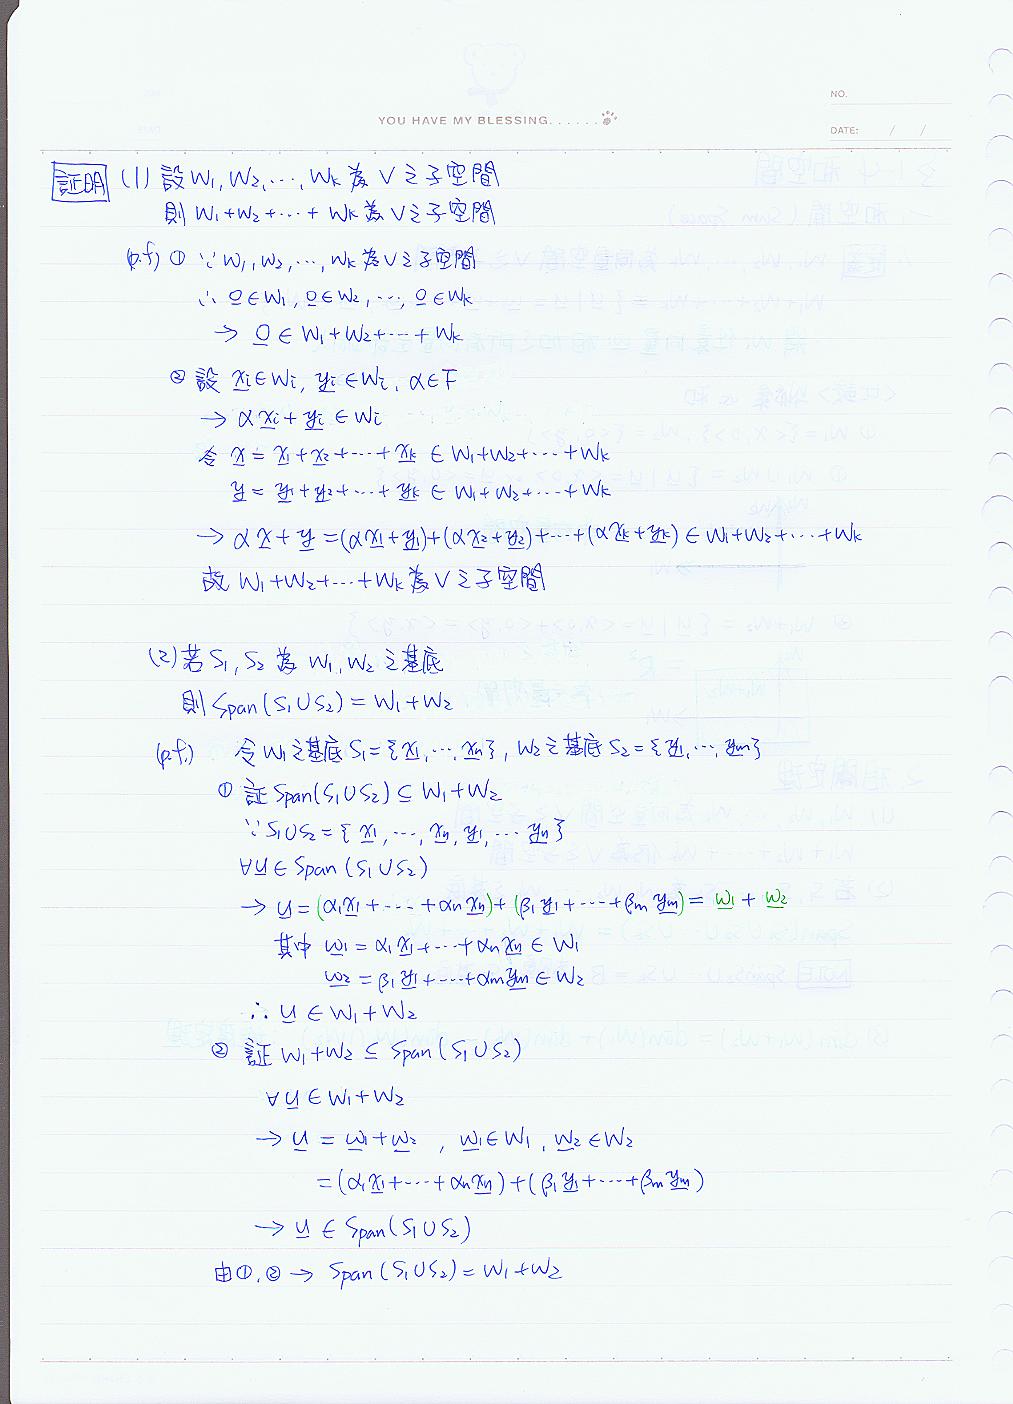 NO.
YOU HAVE MY BLESSING......
DATE: / /
証明 (1) 設 W₁, W₂, ⋯, Wₖ 為 V 之子空間
則 W₁+W₂+⋯+Wₖ 為 V 之子空間
(p.f) ① ∵ W₁, W₂, ⋯, Wₖ 為 V 之子空間
∴ 0̲∈W₁, 0̲∈W₂, ⋯, 0̲∈Wₖ
→ 0̲ ∈ W₁+W₂+⋯+Wₖ
② 設 x̲ᵢ∈Wᵢ, y̲ᵢ∈Wᵢ, α∈F
→ αx̲ᵢ+y̲ᵢ ∈ Wᵢ
令 x̲ = x̲₁+x̲₂+⋯+x̲ₖ ∈ W₁+W₂+⋯+Wₖ
y̲ = y̲₁+y̲₂+⋯+y̲ₖ ∈ W₁+W₂+⋯+Wₖ
→ αx̲+y̲ =(αx̲₁+y̲₁)+(αx̲₂+y̲₂)+⋯+(αx̲ₖ+y̲ₖ) ∈ W₁+W₂+⋯+Wₖ
故 W₁+W₂+⋯+Wₖ 為 V 之子空間
(2) 若 S₁, S₂ 為 W₁, W₂ 之基底
則 Span(S₁∪S₂) = W₁+W₂
(p.f.) 令 W₁之基底 S₁={x̲₁,⋯,x̲ₙ}, W₂之基底 S₂={y̲₁,⋯,y̲ₘ}
① 証 Span(S₁∪S₂) ⊆ W₁+W₂
∵ S₁∪S₂={x̲₁,⋯,x̲ₙ,y̲₁,⋯y̲ₙ}
∀u̲ ∈ Span(S₁∪S₂)
→ u̲ = (α₁x̲₁+⋯⋯+αₙx̲ₙ)+(β₁y̲₁+⋯+βₘy̲ₘ) = w̲₁ + w̲₂
其中 w̲₁ = α₁x̲₁+⋯+αₙx̲ₙ ∈ W₁
w̲₂ = β₁y̲₁+⋯+αₘy̲ₘ ∈ W₂
∴ u̲ ∈ W₁+W₂
② 証 W₁+W₂ ⊆ Span(S₁∪S₂)
∀u̲ ∈ W₁+W₂
→ u̲ = w̲₁+w̲₂ , w̲₁∈W₁, w̲₂∈W₂
=(α₁x̲₁+⋯+αₙx̲ₙ)+(β₁y̲₁+⋯+βₘy̲ₘ)
→ u̲ ∈ Span(S₁∪S₂)
由①,② → Span(S₁∪S₂) = W₁+W₂